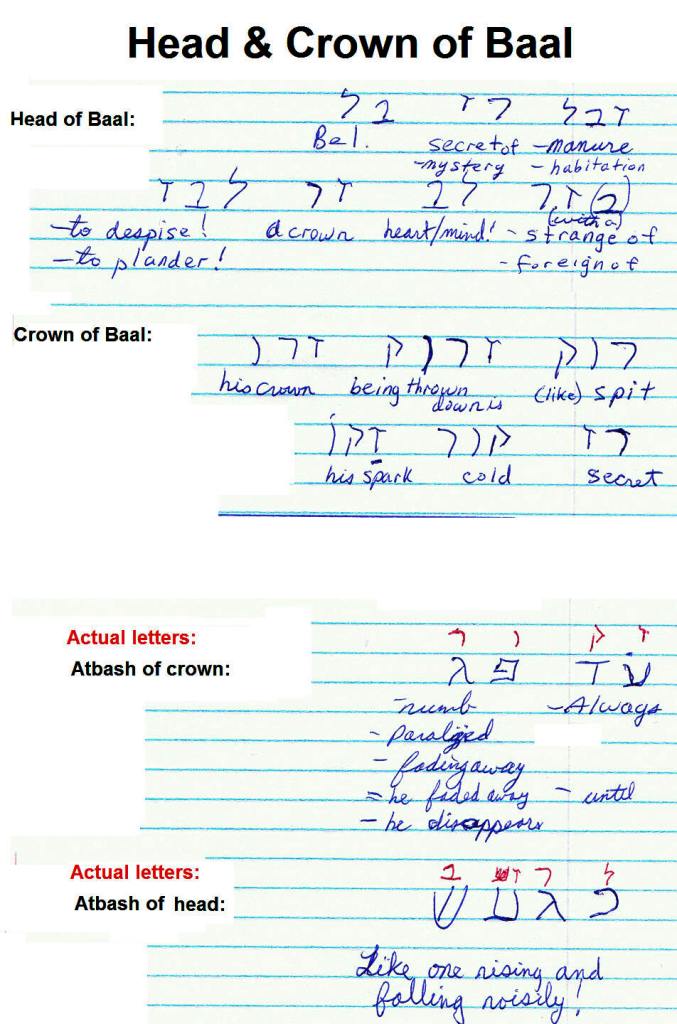 Head & Crown of Baal
Head of Baal:
זבל רז בל
Bel. secret of -manure
-mystery - habitation
(ב)זר לב זר לבז
(with a)
-to despise! a crown heart/mind! - strange of
-to plander! - foreign of
Crown of Baal:
רוק זרוק זרו
his crown being thrown (like) spit
down is
רז קור זקו
his spark cold secret
Actual letters: ז ק ו ר
Atbash of crown: עד פג
-numb -Always
- paralized
- fading away
= he faded away - until
- he disappears
Actual letters: ל ר ז ב
Atbash of head: כגעש
Like one rising and
falling noisily!